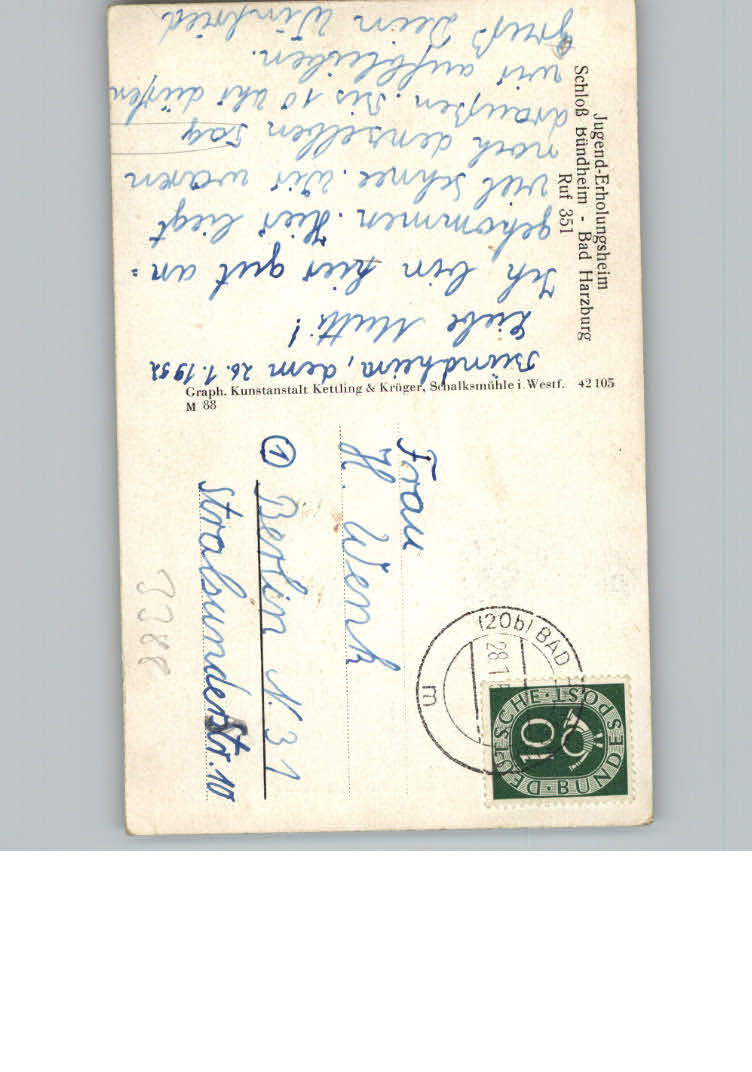 Jugend-Erholungsheim
Schloß Bündheim - Bad Harzburg
Ruf 351
Bündheim, dem 26.1.1952
Liebe Mutti!
Ich bin hier gut an=
gekommen. Hier liegt
viel Schnee. Wir waren
noch denselben Tag
draußen. Bis 10 Uhr dürfen
wir aufbleiben.
Gruß Dein Winfried
Graph. Kunstanstalt Kettling & Krüger, Schalksmühle i. Westf. 42105
M 88
Frau
H. Wenk
① Berlin N. 31
Stralsunderstr. 10
(20b) BAD
28.1.5
m
DEUTSCHE BUNDESPOST
10
3388